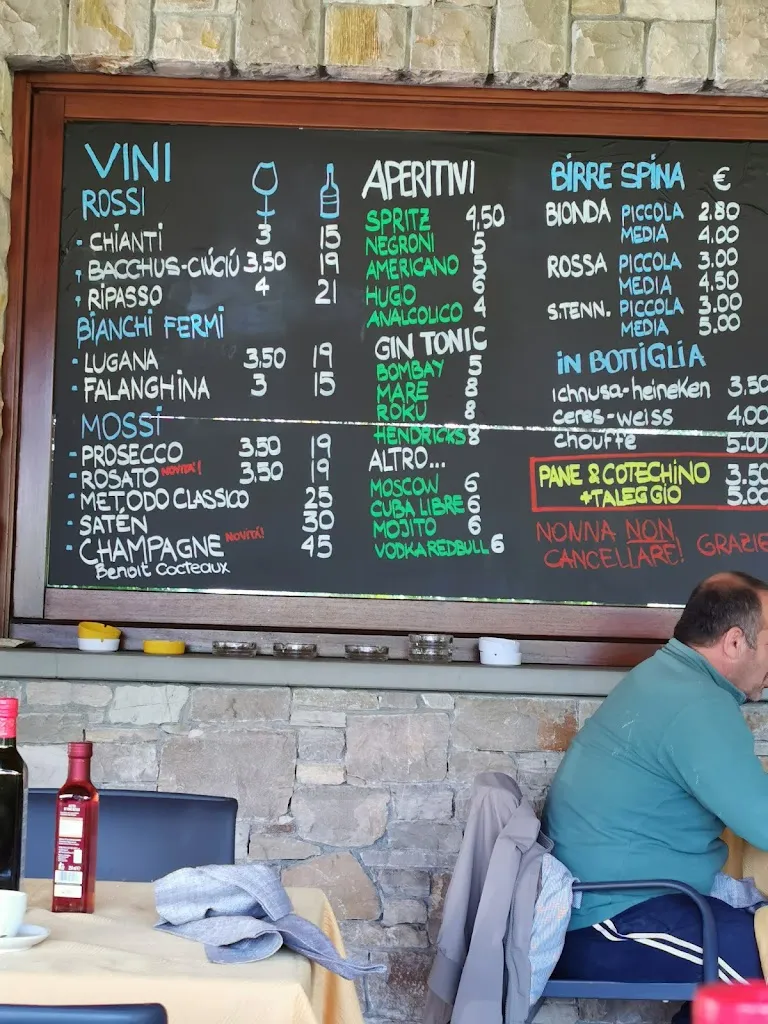 VINI
ROSSI
- CHIANTI 3 15
- BACCHUS-CIÚCIÚ 3,50 19
- RIPASSO 4 21
BIANCHI FERMI
- LUGANA 3,50 19
- FALANGHINA 3 15
MOSSI
- PROSECCO 3,50 19
- ROSATO NOVITÀ! 3,50 19
- METODO CLASSICO 25
- SATÉN 30
- CHAMPAGNE NOVITÁ! 45
Benoit Cocteaux
APERITIVI
SPRITZ 4,50
NEGRONI 5
AMERICANO 5
HUGO 6
ANALCOLICO 4
GIN TONIC
BOMBAY 5
MARE 8
ROKU 8
HENDRICKS 8
ALTRO...
MOSCOW 6
CUBA LIBRE 6
MOJITO 6
VODKAREDBULL 6
BIRRE SPINA €
BIONDA PICCOLA 2.80
MEDIA 4.00
ROSSA PICCOLA 3.00
MEDIA 4.50
S.TENN. PICCOLA 3.00
MEDIA 5.00
IN BOTTIGLIA
ichnusa-heineken 3,50
ceres-weiss 4,00
chouffe 5.00
PANE & COTECHINO 3.50
+TALEGGIO 5.00
NONNA NON
CANCELLARE! GRAZIE